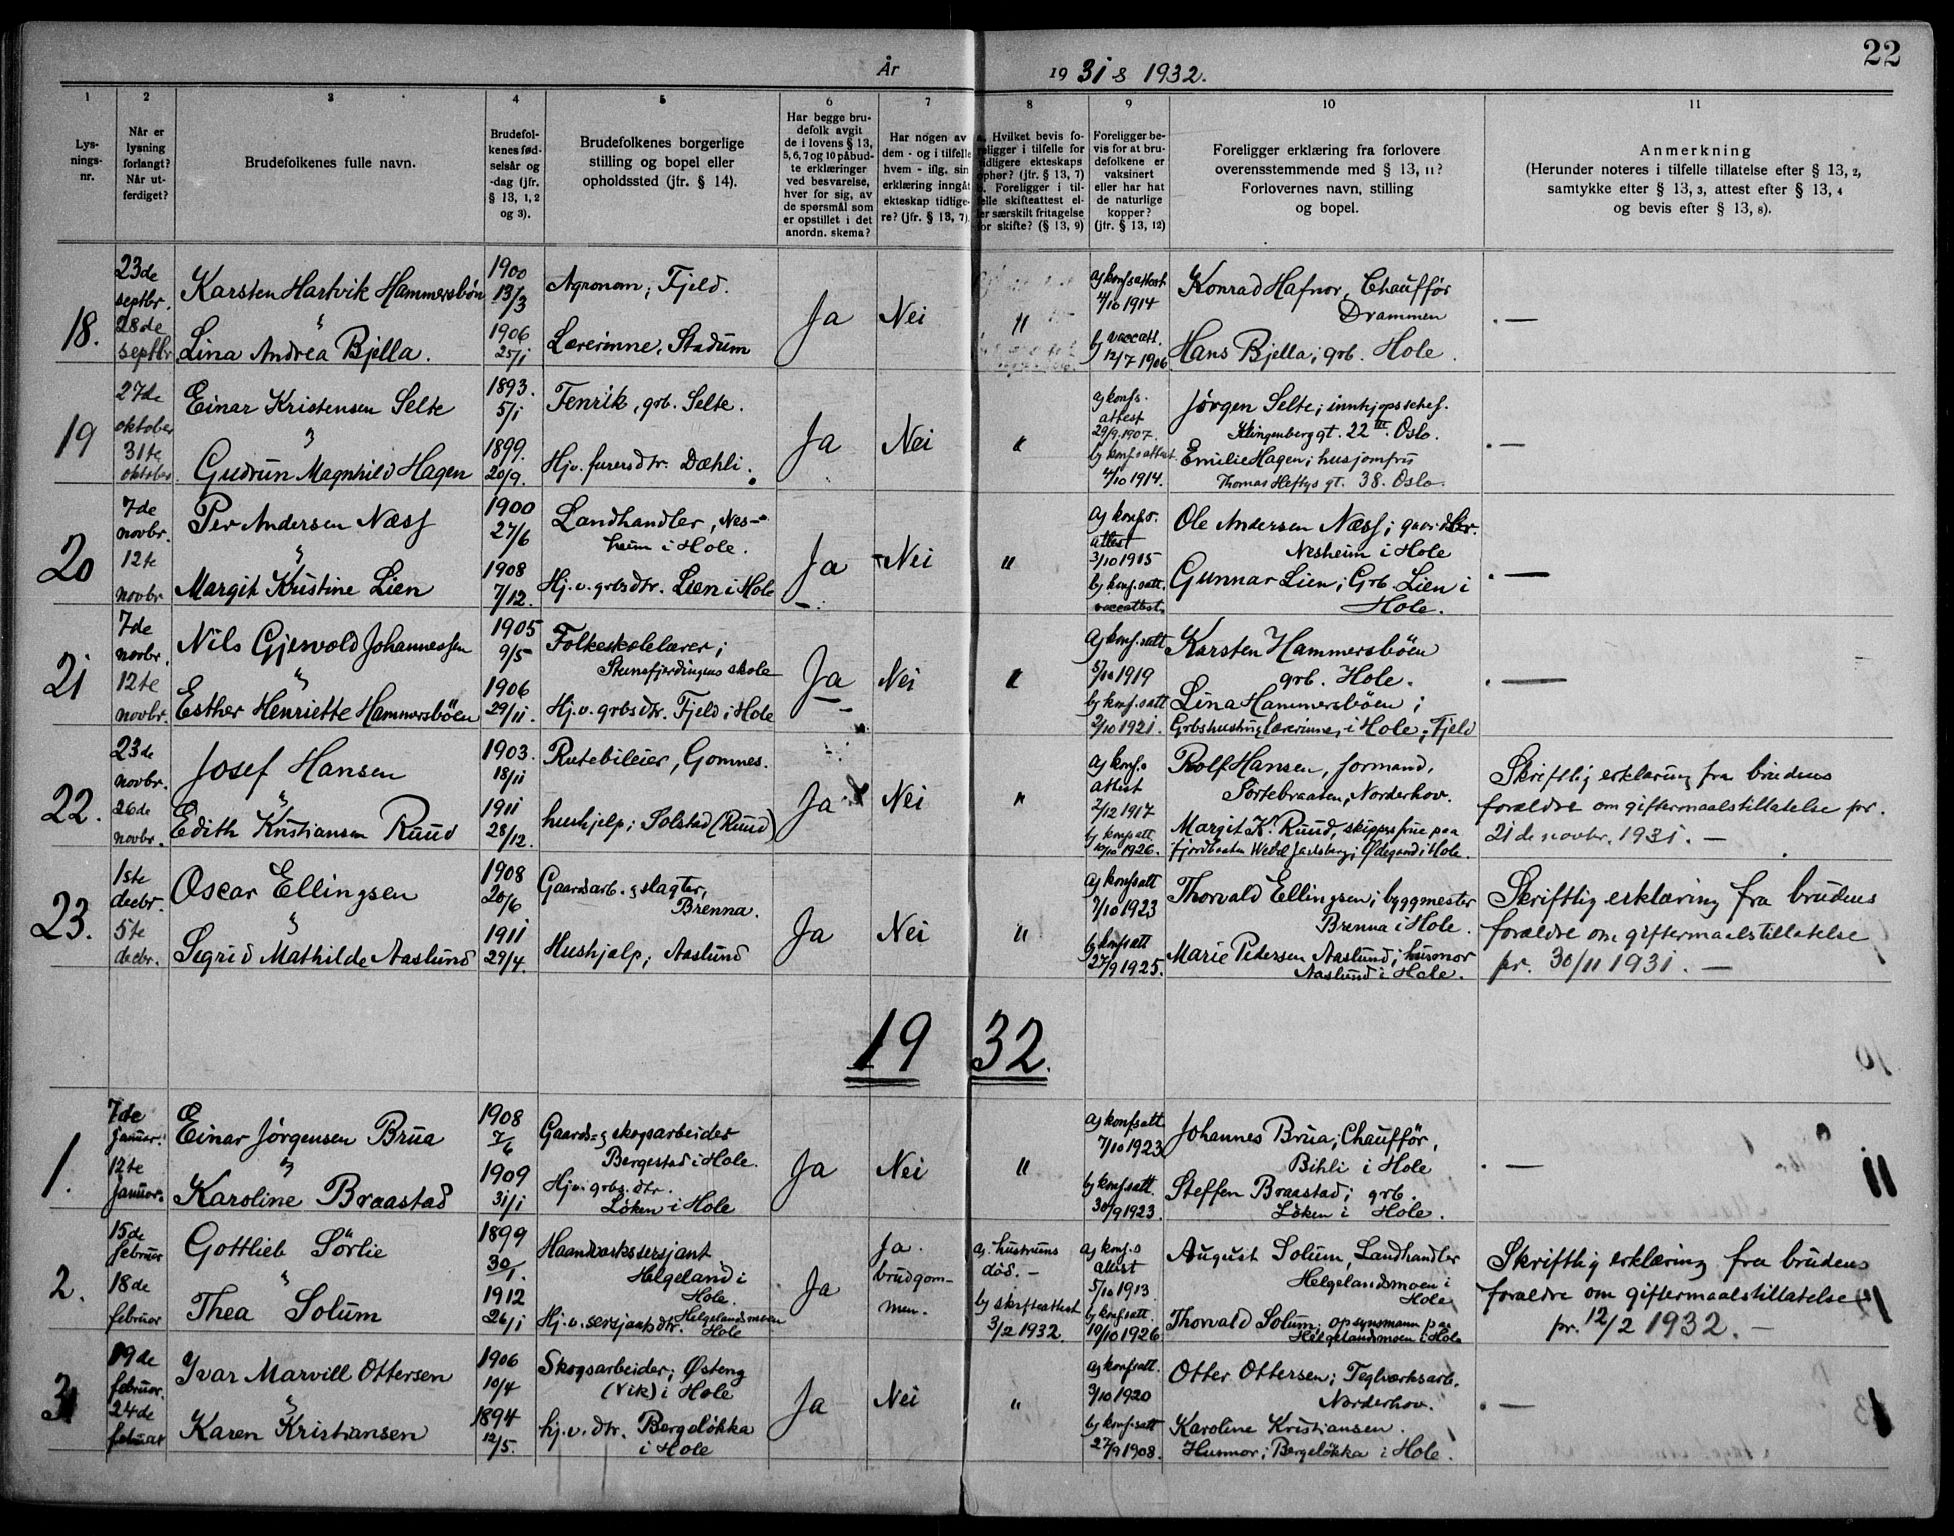 22
År 1931 & 1932.
1 2 3 4 5 6 7 8 9 10 11
Lysningsnr.
Når er lysning forlangt? Når utferdiget?
Brudefolkenes fulle navn.
Brudefolkenes fødselsår og -dag (jfr. § 13, 1, 2 og 3).
Brudefolkenes borgerlige stilling og bopel eller opholdssted (jfr. § 14).
Har begge brudefolk avgit de i lovens § 13, 5, 6, 7 og 10 påbudte erklæringer ved besvarelse, hver for sig, av de spørsmål som er opstillet i det anordn. skema?
Har nogen av dem - og i tilfelle hvem - iflg. sin erklæring inngåt ekteskap tidligere? (jfr. § 13, 7).
a. Hvilket bevis foreligger i tilfelle for tidligere ekteskaps ophør? (jfr. § 13, 7) b. Foreligger i tilfelle skifteattest eller særskilt fritagelse for skifte? (§ 13, 9)
Foreligger bevis for at brudefolkene er vaksinert eller har hat de naturlige kopper? (jfr. § 13, 12)
Foreligger erklæring fra forlovere overensstemmende med § 13, 11? Forlovernes navn, stilling og bopel.
Anmerkning
(Herunder noteres i tilfelle tillatelse efter § 13, 2, samtykke efter § 13, 3, attest efter § 13, 4 og bevis efter § 13, 8).
18.
23de septbr. 28de septbr
Karsten Hartvik Hammersbøn
"
Lina Andrea Bjella.
1900 13/3
1906 25/1
Agronom; Fjeld.
Lærerinne, Stadum
Ja
Nei
"
a) konfsattest 4/10 1914
b) vaccatt. 12/7 1906
Konrad Hafnor, Chauffør
Drammen
Hans Bjella; grb. Hole.
. —
19
27de oktober 31te oktober
Einar Kristensen Selte
"
Gudrun Magnhild Hagen
1893. 5/1
1899. 20/9.
Fenrik, grb. Selte.
Hj.v. furersdtr. Dæhli.
Ja
Nei
"
a) konfs. attest 29/9.1907.
b) konfsattest 4/10 1914.
Jørgen Selte; innkjøpsschef.
Klingenberg gt. 22 III. Oslo.
Emilie Hagen; husjomfru
Thomas Heftys gt. 38. Oslo.
. —
20
7de novbr. 12te novbr.
Per Andersen Næss
"
Margit Kristine Lien
1900 27/6
1908 7/12.
Landhandler, Nesheim i Hole.
Hj.v. grbsdtr. Lien i Hole
Ja
Nei
"
a) konfs. attest 3/10 1915
b) konfsatt. vaccattest.
Ole Andersen Næss; gårdbr.
Nesheim i Hole
Gunnar Lien; Grb. Lien i
Hole.
. —
21
7de novbr. 12te novbr.
Nils Gjesvold Johannessen
"
Esther Henriette Hammersbøen
1905 9/5
1906 29/11.
Folkeskolelærer;
Stensfjerdingens skole
Hj.v. grbsdtr. Fjeld i Hole
Ja
Nei
"
a) konfsatt 5/10 1919
b) konfsatt 2/10 1921.
Karsten Hammersbøen
grb. Hole.
Lina Hammersbøen;
Grbshustru, Lærerinne, i Hole; Fjeld
. —
22.
23de novbr. 26de novbr.
Josef Hansen
"
Edith Kristiansen Ruud
1903. 18/11
1911 28/12.
Rutebileier, Gomnes.
hushjelp; Solstad (Ruud)
Ja
Nei
"
a) konfs attest 2/12 1917
b) konfsatt 10/10 1926.
Rolf Hansen, formand,
Sørtebraaten, Norderhov.
Margit K. Ruud, skippersfrue paa
fjordbaaten Wedel Jarlsberg; Ødegaard i Hole.
Skriftlig erklæring fra brudens
forældre om giftermaalstillatelse pr.
21de novbr. 1931. —
23.
1ste decbr. 5te decbr.
Oscar Ellingsen
"
Sigrid Mathilde Aaslund
1908 20/6
1911 29/4.
Gaardsarb. & slagter,
Brenna.
Hushjælp; Aaslund
Ja
Nei
"
a) konfsatt 7/10 1923
b) konfsatt 27/9 1925.
Thorvald Ellingsen; byggmester
Brenna i Hole.
Marie Pedersen Aaslund; husmor
Aaslund i Hole.
Skriftlig erklæring fra brudens
forældre om giftermaalstillatelse
pr. 30/11 1931. —
1932.
1.
7de januar. 12te januar.
Einar Jørgensen Brua
"
Karoline Braastad
1908 7/6
1909 31/1
Gaards- & skogsarbeider
Bergestad i Hole.
Hj.v. grbs.dtr.
Løken i Hole
Ja
Nei
"
a) konfsatt 7/10 1923
b) konfsatt. 30/9 1923.
Johannes Brua; Chauffør,
Bihli i Hole
Steffen Braastad; grb.
Løken i Hole.
. —
2.
15de februar 18de februar
Gottlieb Sørlie
"
Thea Solum
1899 30/1.
1912 26/1
Haandverkssersjant
Helgeland i
Hole.
Hj.v. sersjantsdtr. Helgelandsmoen
Hole
Ja
Ja.
brudgommen.
a. hustruns død. —
b) skifteattest 3/2 1932.
a) konfs attest 5/10 1913
b) konfsatt. 10/10 1926
August Solum, Landhandler
Helgelandsmoen i
Hole
Thorvald Solum, opsynsmann paa
Helgelandsmoen i Hole
Skriftlig erklæring fra brudens
forældre om giftermaalstillatelse
pr. 12/2 1932. —
3
19de februar. 24de februar
Ivar Marvill Ottersen
"
Karen Kristiansen
1906 10/4
1894 12/5.
Skogsarbeider; Østeng
(Vik) i Hole
hj.v. dtr. Bergeløkka
i Hole
Ja
Nei
"
a) konfsatt. 3/10 1920
b) konfsatt 27/9 1908.
Otter Ottersen; Teglverksarb.
Norderhov.
Karoline Kristiansen.
Husmor; Bergeløkka i Hole.
. —